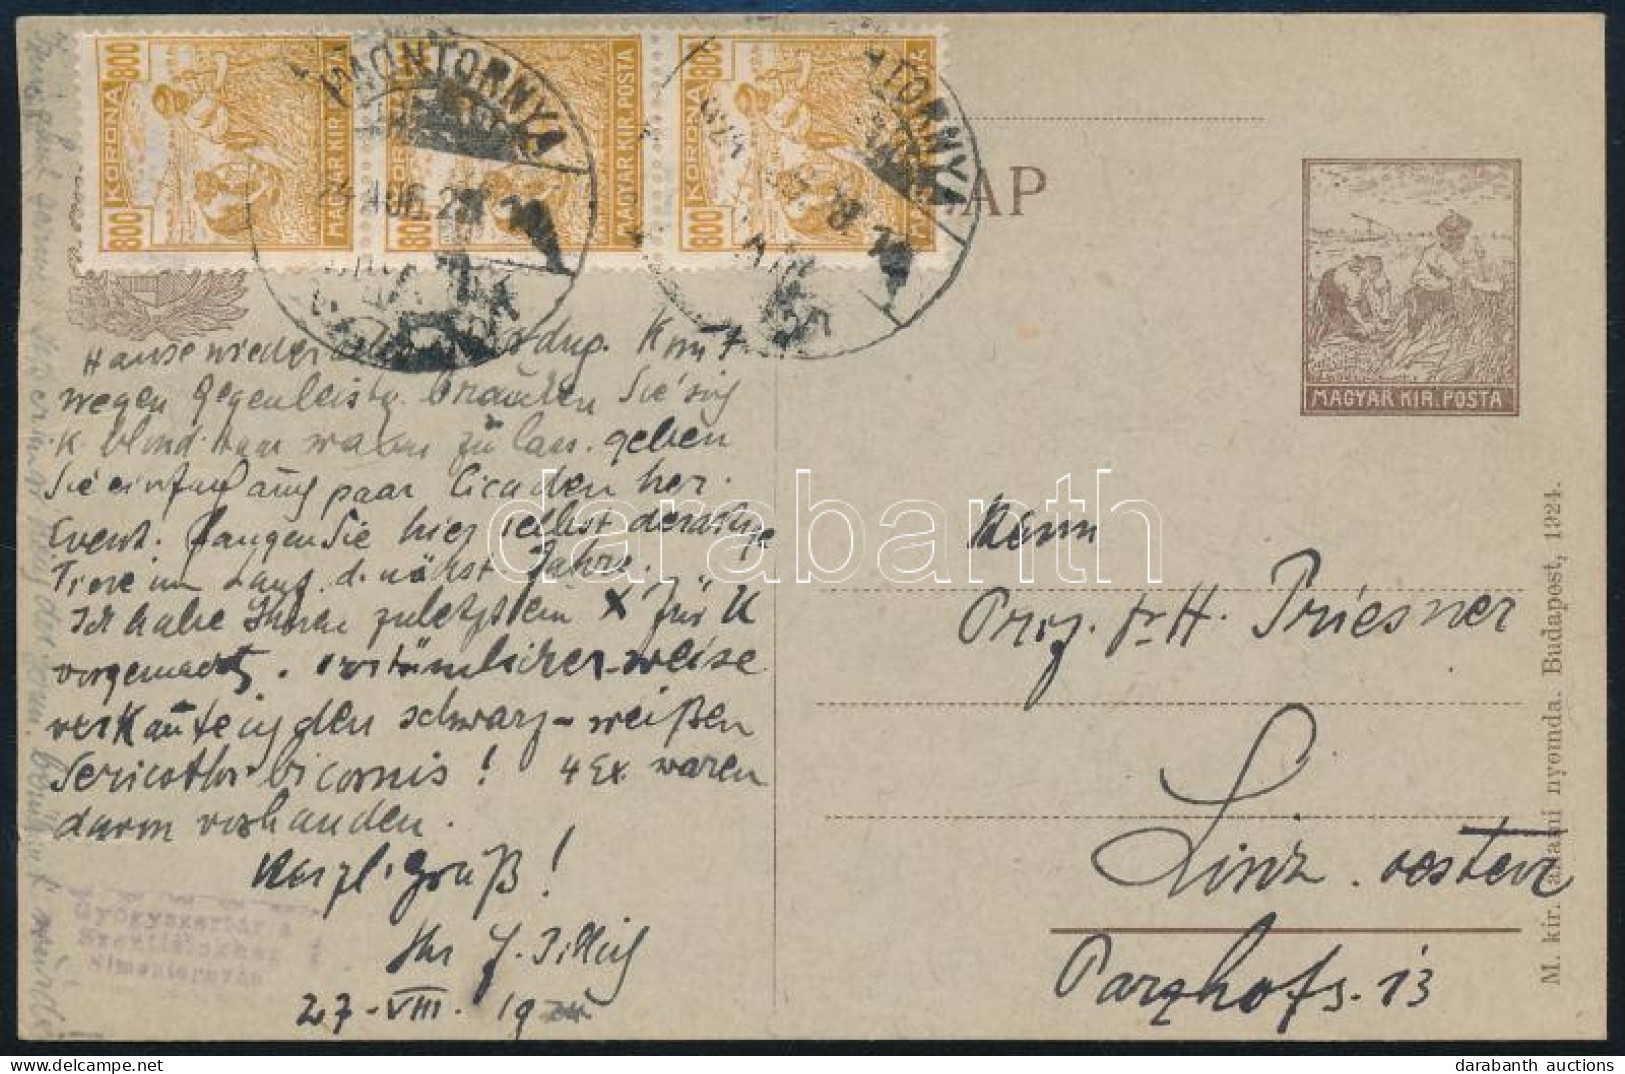 800 KORONA MAGYAR KIR. POSTA
800 KORONA MAGYAR KIR. POSTA
800 KORONA MAGYAR KIR. POSTA
MONTORNYA
24 AUG 28
TORNYA
AP
MAGYAR KIR. POSTA
Hause wieder
wegen Gegenleistg. brauchen Sie sich
K blond. Haar zu lass. geben
Sie einfach paar Cicaden her.
Event. fangen Sie hier selbst derartige
Tiere im Lauf. d. nächst Jahre.
Ich habe Ihnen zuletzt ein X für U
vorgemacht. irrtümlicherweise
verkaufte ich den schwarz-weißen
Sericothr. bicornis! 4 Ex. waren
darin vorhanden.
Herzl. Gruß!
Ihr J. Pillich
27-VIII. 1924
Gyógyszertár a
Szentlélekhez
Simontornyán
Herrn
Prof. Dr H. Priesner
Linz. Österr
Parzhofs. 13
M. kir. állami nyomda. Budapest, 1924.
darabanth
darabanth auctions